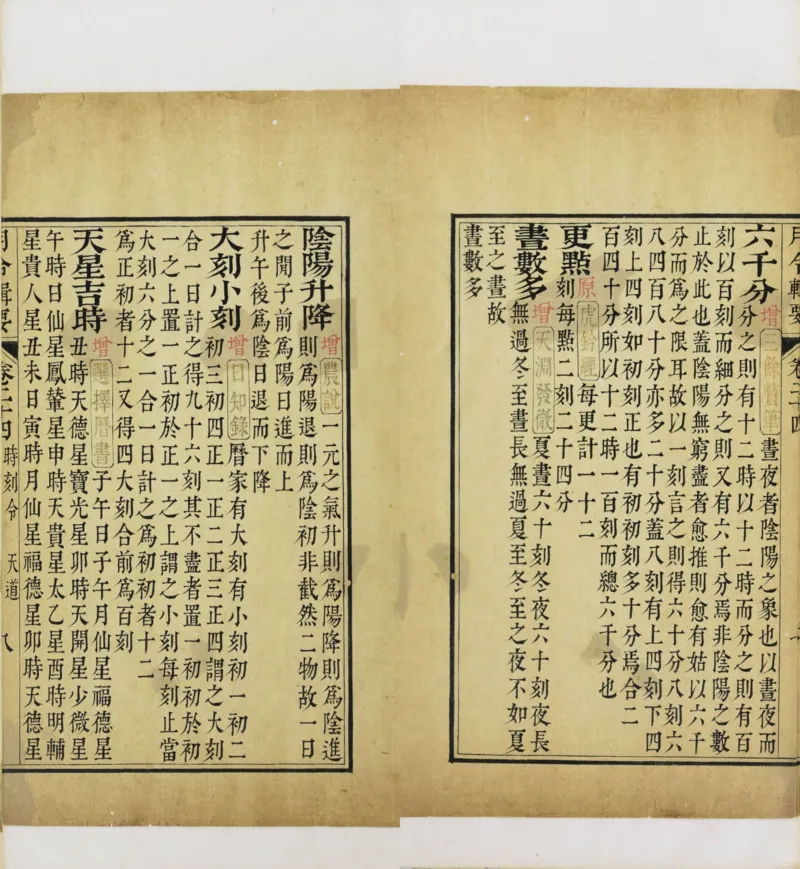 月令輯要 卷二十四
六千分 增 三餘贅筆 晝夜者陰陽之象也以晝夜而
分之則有十二時以十二時而分之則有百
刻以百刻而細分之則又有六千分焉非陰陽之數
止於此也蓋陰陽無窮盡者愈推則愈有姑以六千
分而爲之限耳故以一刻言之則得六十分八刻六
八四百八十分亦多二十分蓋八刻有上四刻下四
刻上四刻如初刻正也有初初刻多十分焉合二
百四十分所以十二時一百刻而總六千分也
更點 原 虎鈐經 每更計一十二
刻每點二刻二十四分
晝數多 增 天淵發微 夏晝六十刻冬夜六十刻夜長
無過冬至晝長無過夏至冬至之夜不如夏
至之晝故
晝數多
陰陽升降 增 農說 一元之氣升則爲陽降則爲陰進
則爲陽退則爲陰初非截然二物故一日
之閒子前爲陽日進而上
升午後爲陰日退而下降
大刻小刻 增 日知錄 曆家有大刻有小刻初一初二
初三初四正一正二正三正四謂之大刻
合一日計之得九十六刻其不盡者置一初初於初
一之上置一正初於正一之上謂之小刻每刻止當
大刻六分之一合一日計之爲初初者十二
爲正初者十二又得四大刻合前爲百刻
天星吉時 增 選擇曆書 子午日子午月仙星福德星
丑時天德星寶光星卯時天開星少微星
午時日仙星鳳輦星申時天貴星太乙星酉時明輔
星貴人星丑未日寅時月仙星福德星卯時天德星
月令輯要 卷二十四 時刻令 天道 八